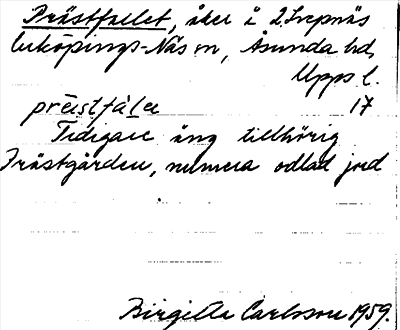 Prästfallet, åker i 2. Svepnäs
Enköpings-Näs sn, Åsunda hd,
Upps l.
prä̀stfàłe 17
Tidigare äng tillhörig
Prästgården, numera odlad jord
Birgitta Carlsson 1959.